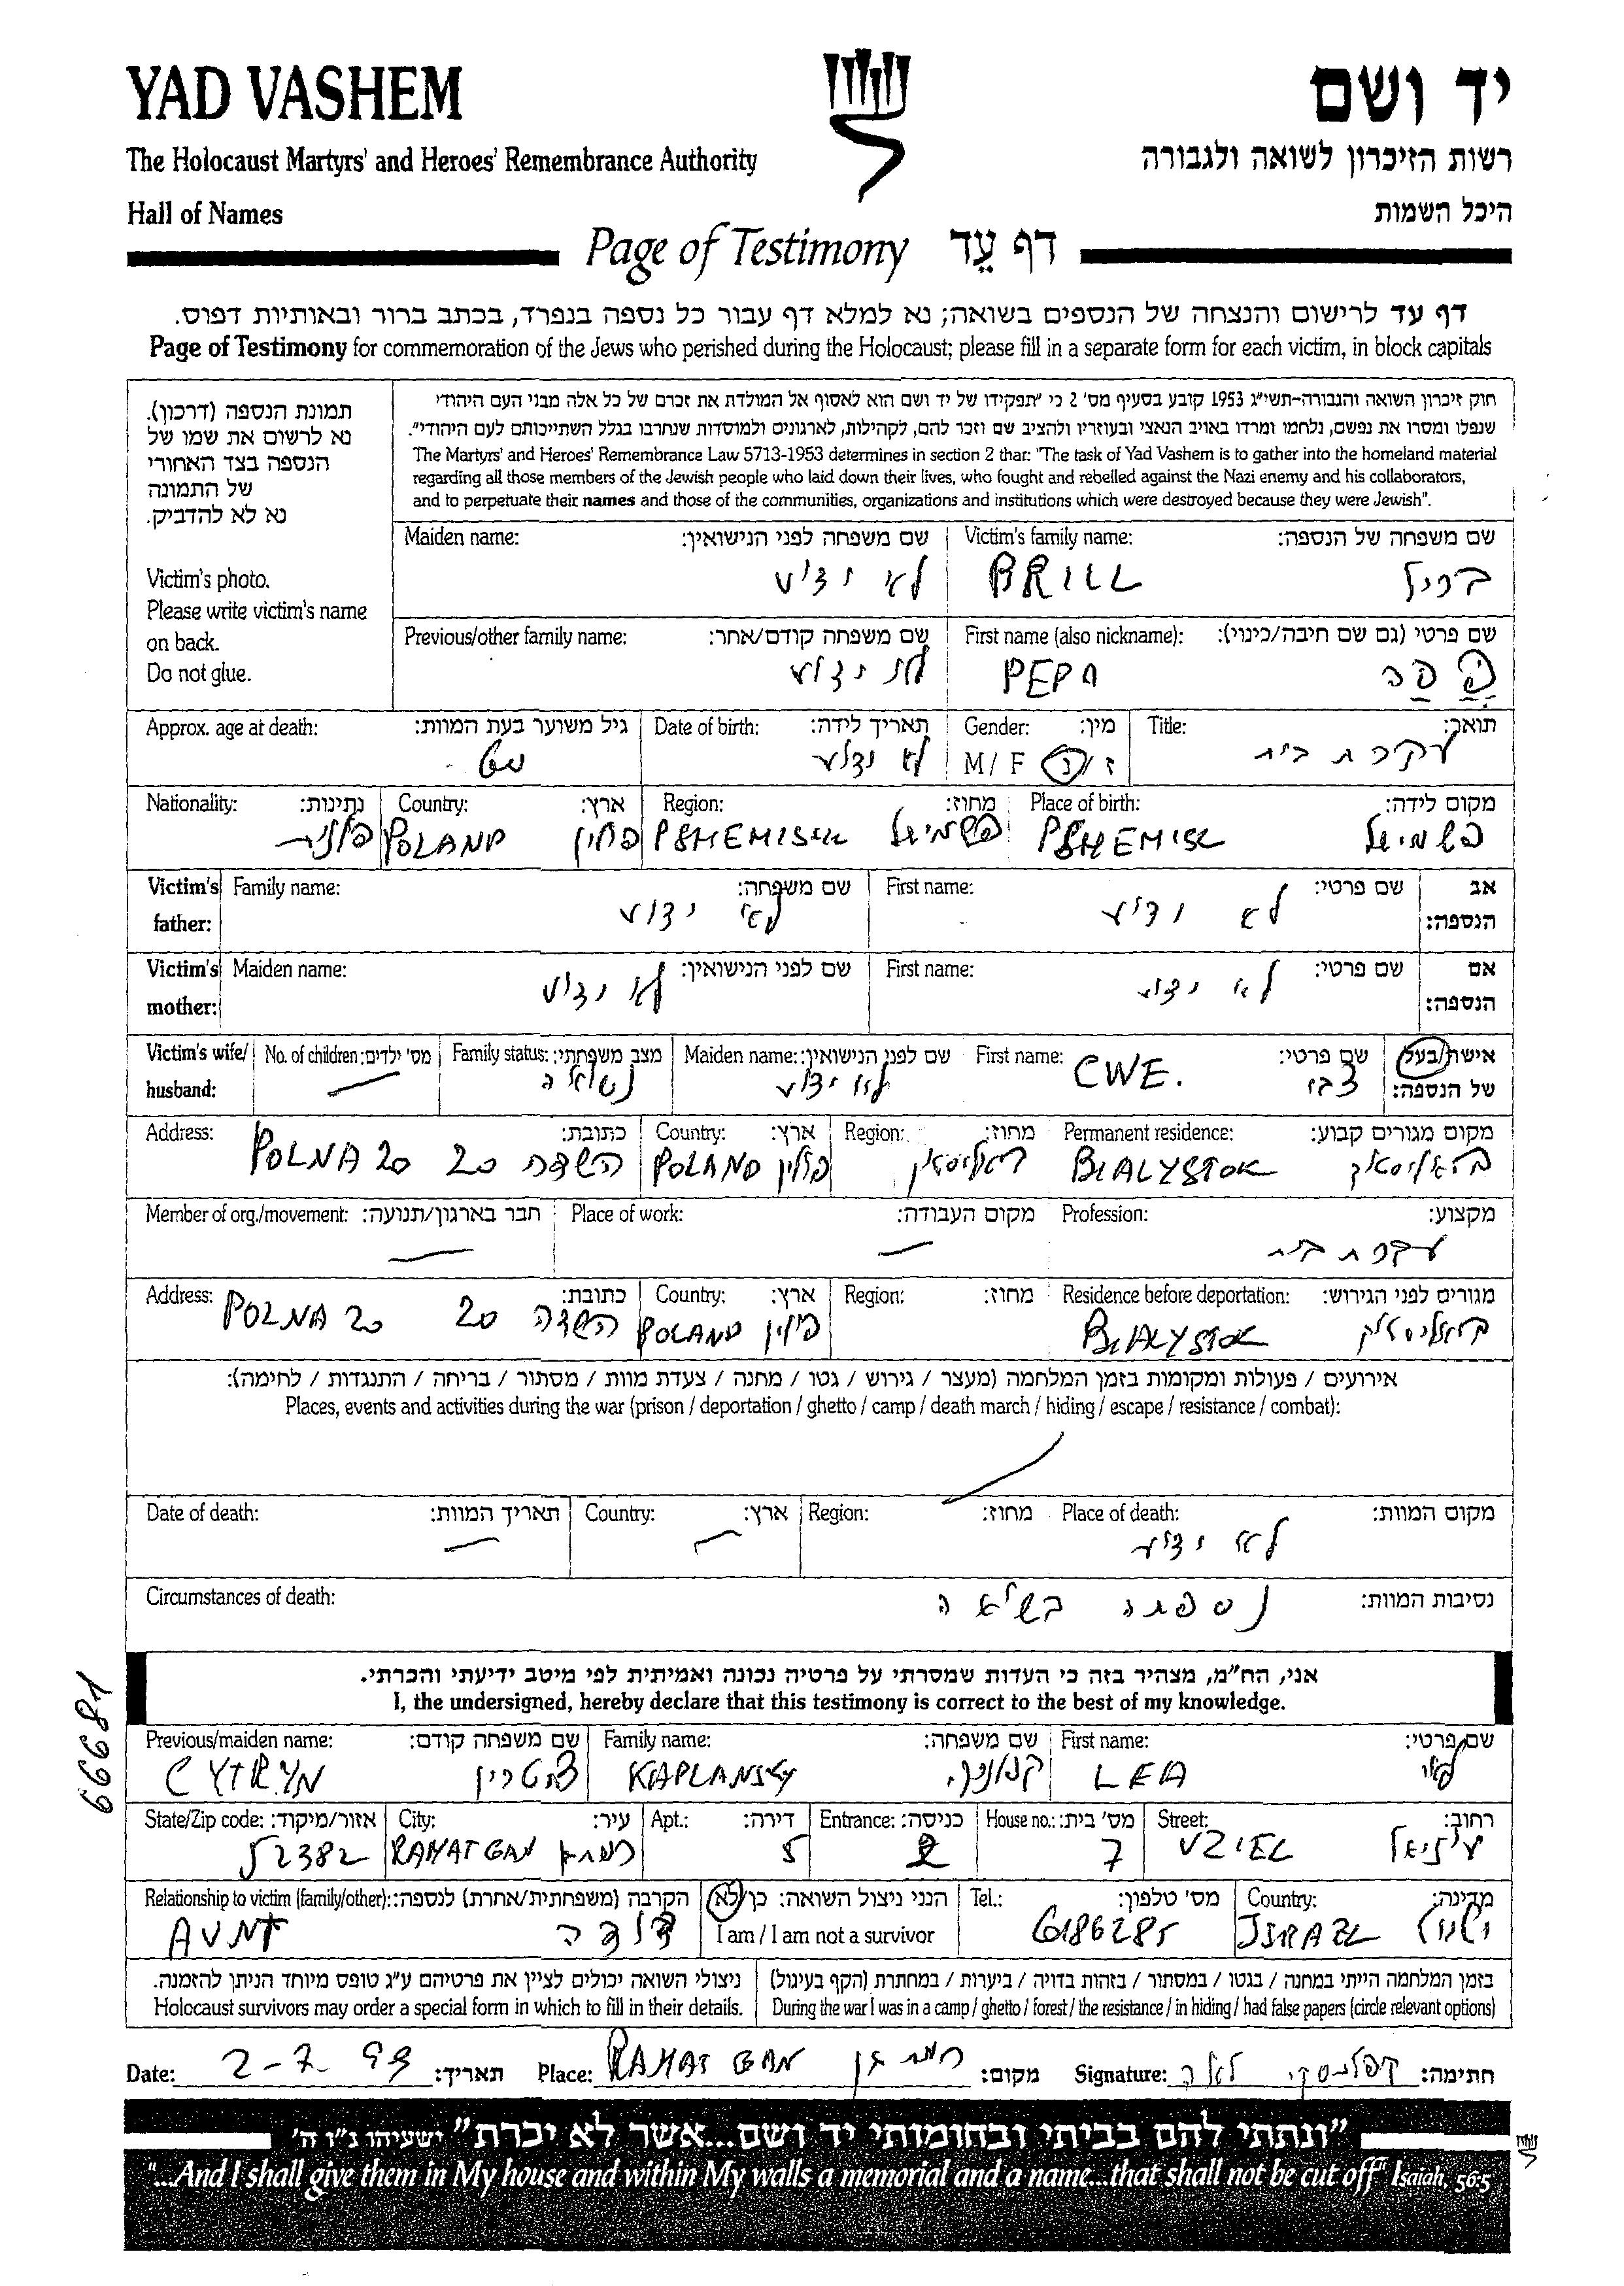 YAD VASHEM
יד ושם
The Holocaust Martyrs' and Heroes' Remembrance Authority
רשות הזיכרון לשואה ולגבורה
Hall of Names
היכל השמות
Page of Testimony דף עֵד
דף עד לרישום והנצחה של הנספים בשואה; נא למלא דף עבור כל נספה בנפרד, בכתב ברור ובאותיות דפוס.
Page of Testimony for commemoration of the Jews who perished during the Holocaust; please fill in a separate form for each victim, in block capitals
תמונת הנספה (דרכון).
נא לרשום את שמו של
הנספה בצד האחורי
של התמונה
נא לא להדביק.
Victim's photo.
Please write victim's name
on back.
Do not glue.
חוק זיכרון השואה והגבורה-תשי"ג 1953 קובע בסעיף מס' 2 כי "תפקידו של יד ושם הוא לאסוף אל המולדת את זכרם של כל אלה מבני העם היהודי
שנפלו ומסרו את נפשם, נלחמו ומרדו באויב הנאצי ובעוזריו ולהציב שם וזכר להם, לקהילות, לארגונים ולמוסדות שנחרבו בגלל השתייכותם לעם היהודי".
The Martyrs' and Heroes' Remembrance Law 5713-1953 determines in section 2 that: "The task of Yad Vashem is to gather into the homeland material
regarding all those members of the Jewish people who laid down their lives, who fought and rebelled against the Nazi enemy and his collaborators,
and to perpetuate their names and those of the communities, organizations and institutions which were destroyed because they were Jewish".
Maiden name: שם משפחה לפני הנישואין: Victim's family name: שם משפחה של הנספה:
לא ידוע BRILL בריל
Previous/other family name: שם משפחה קודם/אחר: First name (also nickname): שם פרטי (גם שם חיבה/כינוי):
לא ידוע PEPA פפה
Approx. age at death: גיל משוער בעת המוות: Date of birth: תאריך לידה: Gender: מין: Title: תואר:
לא ידוע M / F ז / נ עקרת בית
Nationality: נתינות: Country: ארץ: Region: מחוז: Place of birth: מקום לידה:
פולנית POLAND פולין PSHEMISL פשמישל PSHEMISL פשמישל
Victim's father: Family name: שם משפחה: First name: שם פרטי: אב הנספה:
לא ידוע לא ידוע
Victim's mother: Maiden name: שם לפני הנישואין: First name: שם פרטי: אם הנספה:
לא ידוע לא ידוע
Victim's wife/ husband: No. of children: מס' ילדים: Family status: מצב משפחתי: Maiden name: שם לפני הנישואין: First name: שם פרטי: אישת/בעל של הנספה:
נשואה לא ידוע CWE. צבי
Address: כתובת: Country: ארץ: Region: מחוז: Permanent residence: מקום מגורים קבוע:
POLNA 20 השדה 20 POLAND פולין ביאליסטוק BIALYSTOK ביאליסטוק
Member of org./movement: חבר בארגון/תנועה: Place of work: מקום העבודה: Profession: מקצוע:
עקרת בית
Address: כתובת: Country: ארץ: Region: מחוז: Residence before deportation: מגורים לפני הגירוש:
POLNA 20 השדה 20 POLAND פולין BIALYSTOK ביאליסטוק
אירועים / פעולות ומקומות בזמן המלחמה (מעצר / גירוש / גטו / מחנה / צעדת מוות / מסתור / בריחה / התנגדות / לחימה):
Places, events and activities during the war (prison / deportation / ghetto / camp / death march / hiding / escape / resistance / combat):
Date of death: תאריך המוות: Country: ארץ: Region: מחוז: Place of death: מקום המוות:
לא ידוע
Circumstances of death: נסיבות המוות:
נספתה בשואה
אני, הח"מ, מצהיר בזה כי העדות שמסרתי על פרטיה נכונה ואמיתית לפי מיטב ידיעתי והכרתי.
I, the undersigned, hereby declare that this testimony is correct to the best of my knowledge.
66681
Previous/maiden name: שם משפחה קודם: Family name: שם משפחה: First name: שם פרטי:
CYTRYN ציטרין KAPLANSKY קפלנסקי LEA לאה
State/Zip code: אזור/מיקוד: City: עיר: Apt.: דירה: Entrance: כניסה: House no.: מס' בית: Street: רחוב:
52382 RAMAT GAN רמת גן 5 7 UZIEL עוזיאל
Relationship to victim (family/other): הקרבה (משפחתית/אחרת) לנספה: הנני ניצול השואה: כן/לא Tel.: מס' טלפון: Country: מדינה:
AUNT דודה I am / I am not a survivor 6186285 ISRAEL ישראל
ניצולי השואה יכולים לציין את פרטיהם ע"ג טופס מיוחד הניתן להזמנה. בזמן המלחמה הייתי במחנה / בגטו / במסתור / בזהות בדויה / ביערות / במחתרת (הקף בעיגול)
Holocaust survivors may order a special form in which to fill in their details. During the war I was in a camp / ghetto / forest / the resistance / in hiding / had false papers (circle relevant options)
Date: 2-7 99 תאריך: Place: RAMAT GAN רמת גן מקום: Signature: קפלנסקי לאה חתימה:
"ונתתי להם בביתי ובחומותי יד ושם...אשר לא יכרת" ישעיהו נ"ו ה'
"...And I shall give them in My house and within My walls a memorial and a name...that shall not be cut off" Isaiah, 56:5